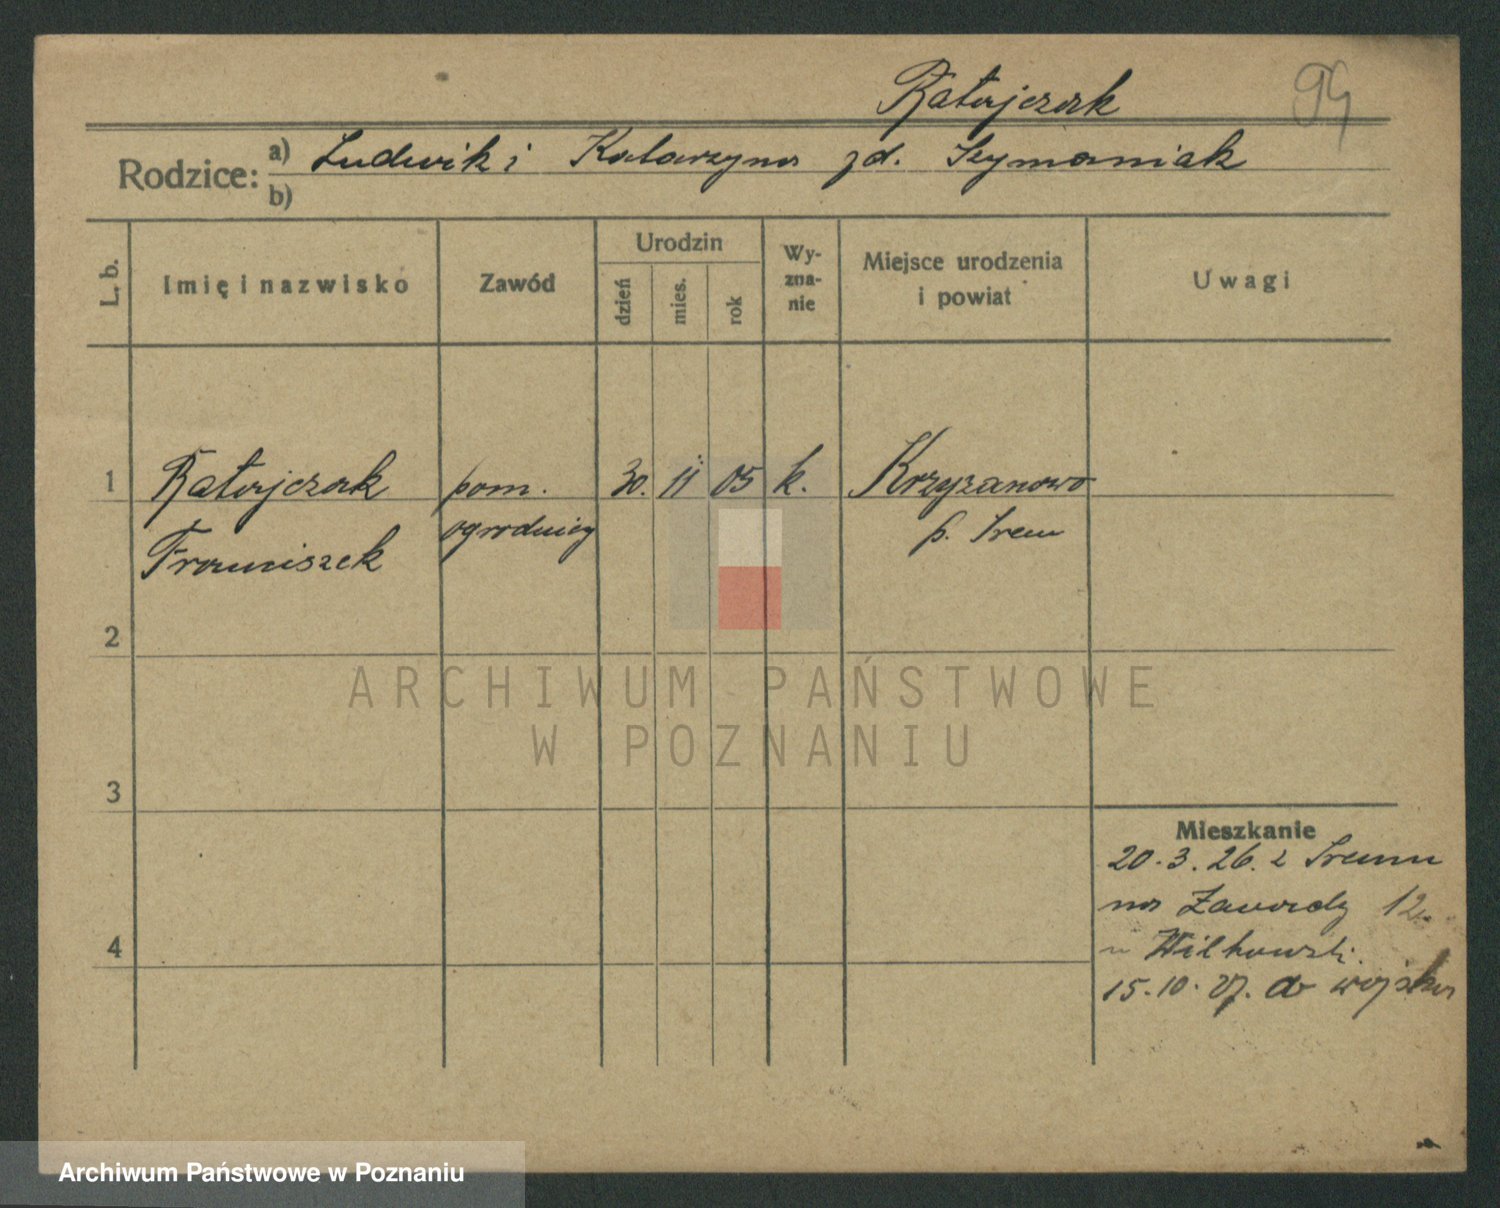 Ratajczak
94
Rodzice: a) Ludwik i Katarzyna zd. Szymaniak
b)
L. b.
Imię i nazwisko
Zawód
Urodzin
dzień
mies.
rok
Wy-
zna-
nie
Miejsce urodzenia
i powiat
Uwagi
1
Ratajczak
pom.
30. 11 05 k.
Krzyżanowo
Franciszek
ogrodniczy
p. Śrem
2
ARCHIWUM PAŃSTWOWE
W POZNANIU
3
Mieszkanie
20.3.26. z Śremu
na Zawady 12
u Wilkowski.
4
15.10.27. do wojska
Archiwum Państwowe w Poznaniu